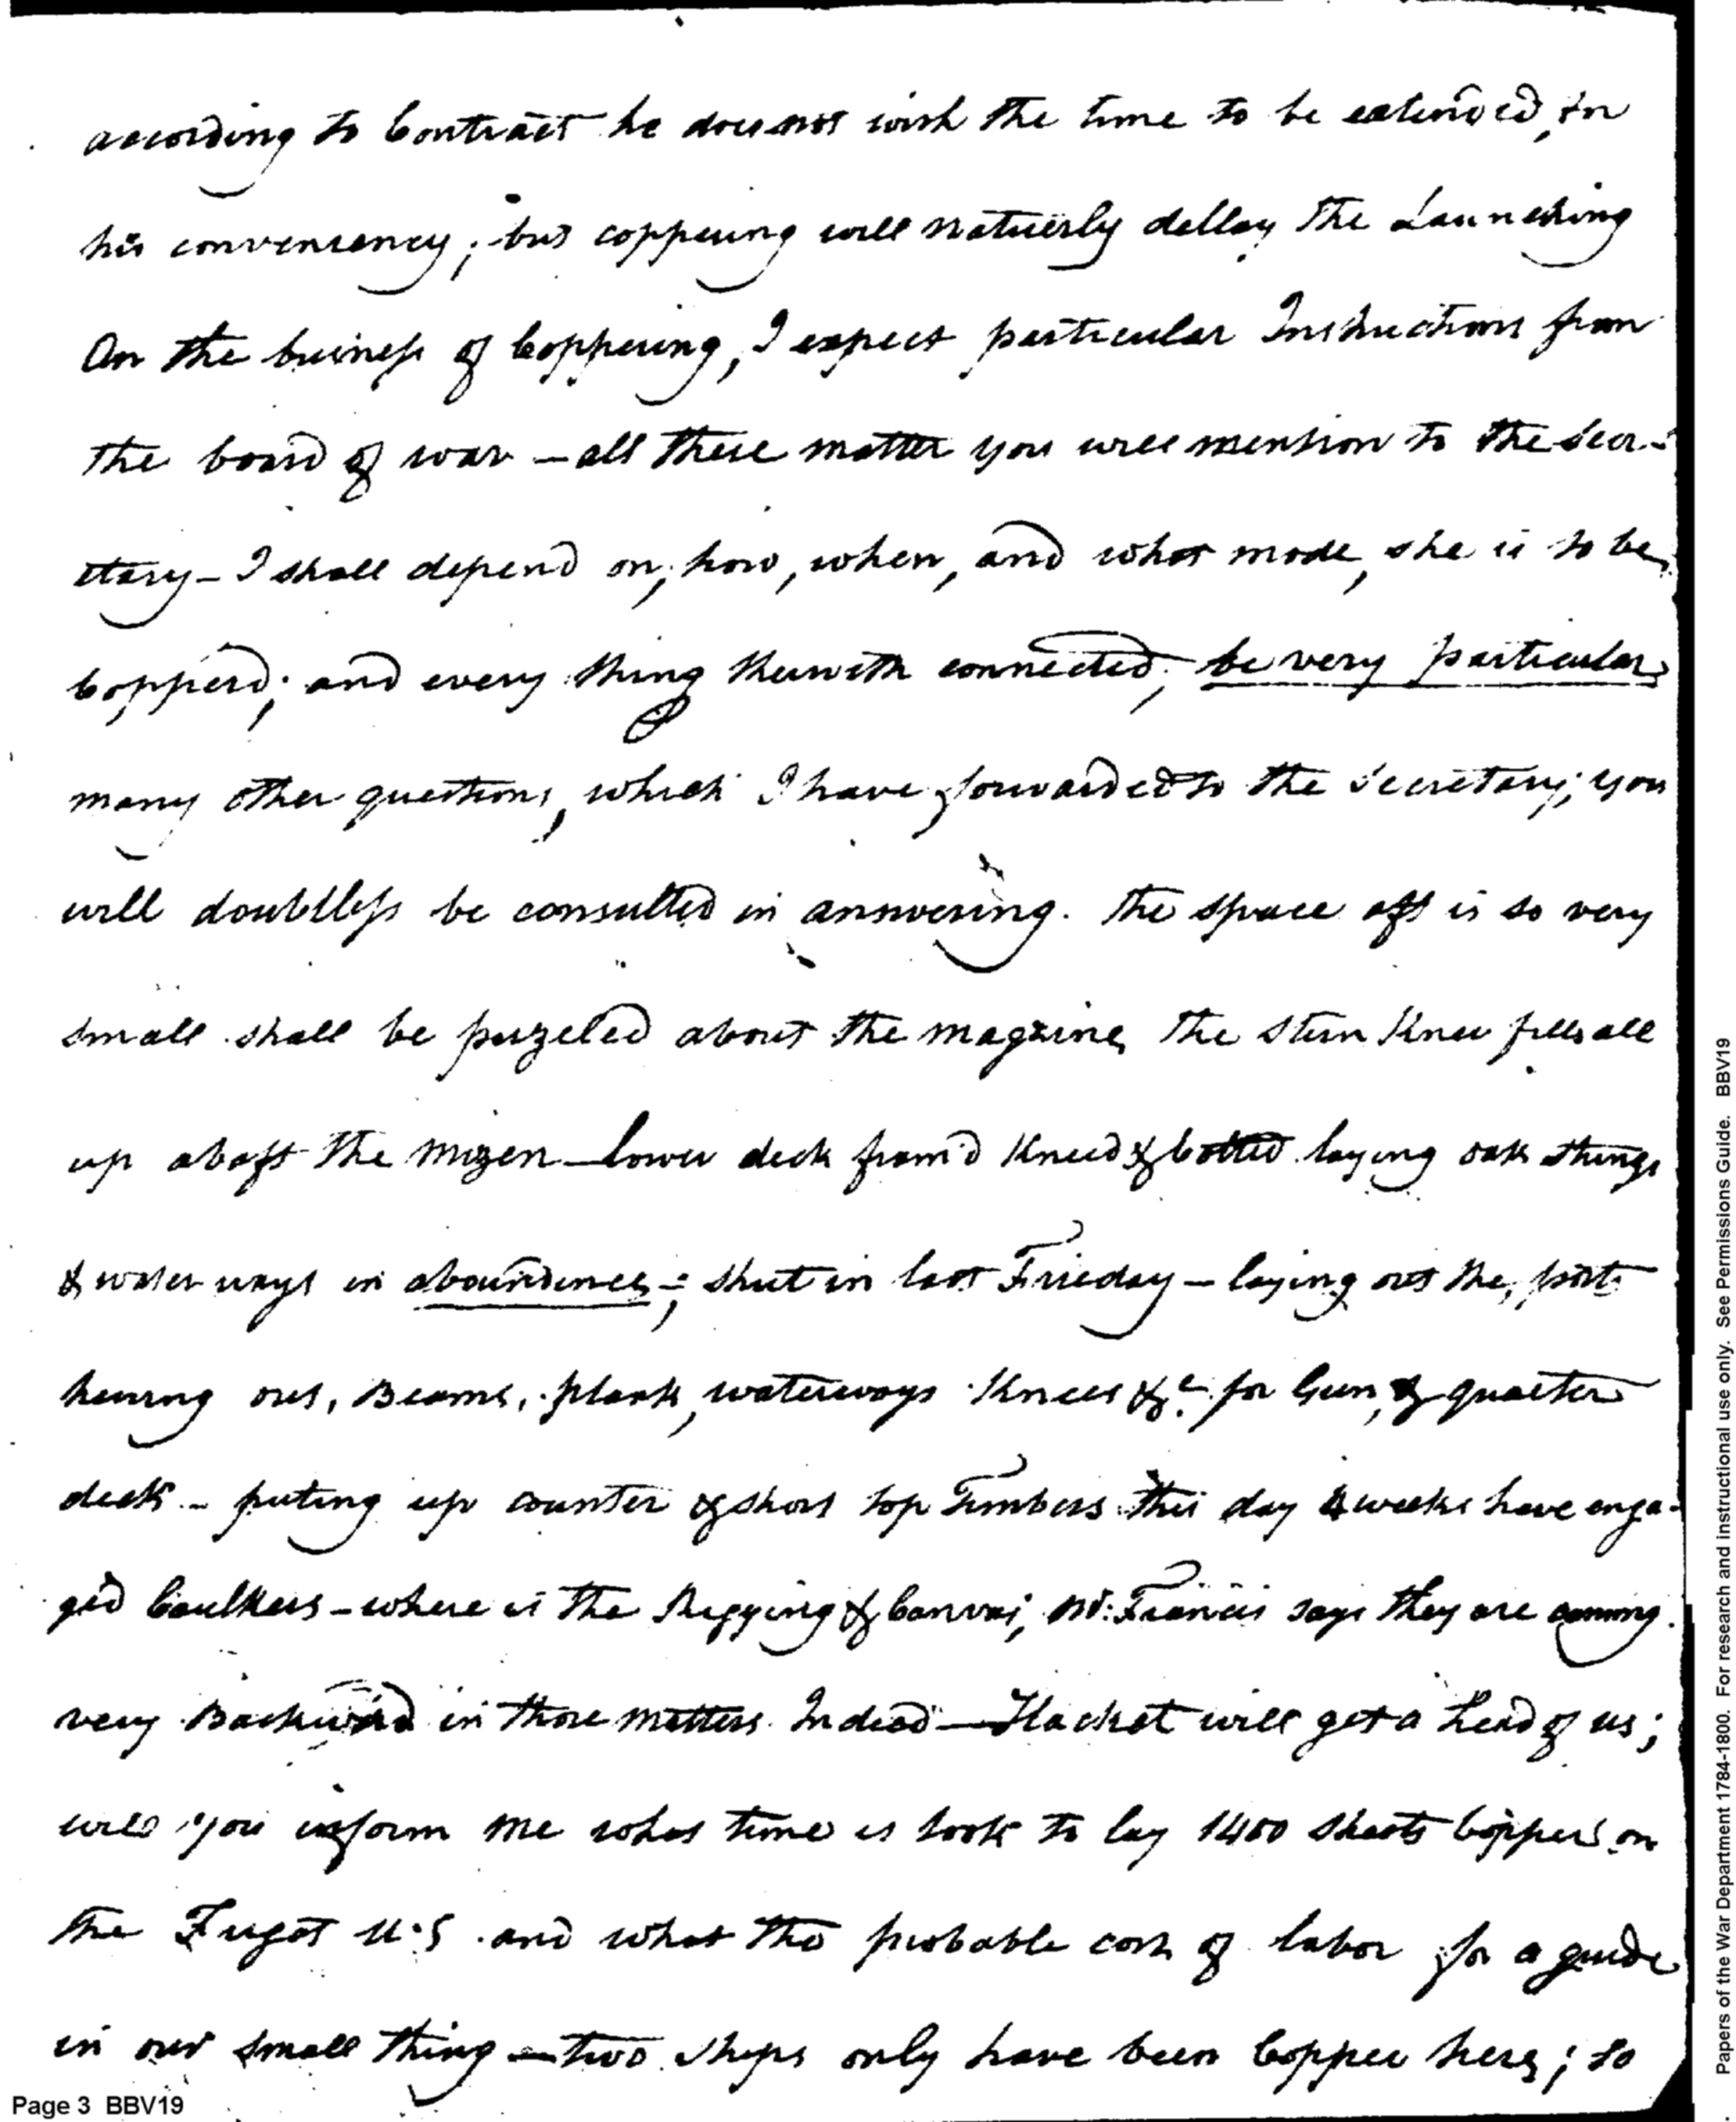 according to Contract he does not wish the time to be extended, for
his conveniency; but coppering will naturerly dellay the Launching
On the buiness of Coppering, I expect particular Instructions from
the board of war – all these matter you will mention to the Secr-
etary – I shall depend on, how, when, and what mode, she is to be
Copperd; and every thing therewith connected; be very particular
many other questions, which I have forwarded to the Secretary; you
will doubtless be consulted in answering. The space aft is so very
small shall be puzeled about the magzine, the Stern Knee fills all
up abaft the mizen – lower deck fram'd Kneed & bolted laying oak things
& water ways in aboundence –; shut in last Frieday – laying out the, ports
hewing out, Beams, plank, waterways Knees &c. for Gun, & quarter
deck – puting up counter & short top Timbers this day 4 weeks have enga-
ged Caulkers – where is the Rigging & Canvas, Mr. Francis says they are coming.
very Backward in those matters Indeed – Hacket will get a head of us;
will you inform me what time is took to lay 1400 Sheets Copper on
the Frigat U.S and what the probable cost of labor for a guide
in our small thing – two ships only have been Copper here; so
Page 3 BBV19
Papers of the War Department 1784-1800. For research and instructional use only. See Permissions Guide. BBV19